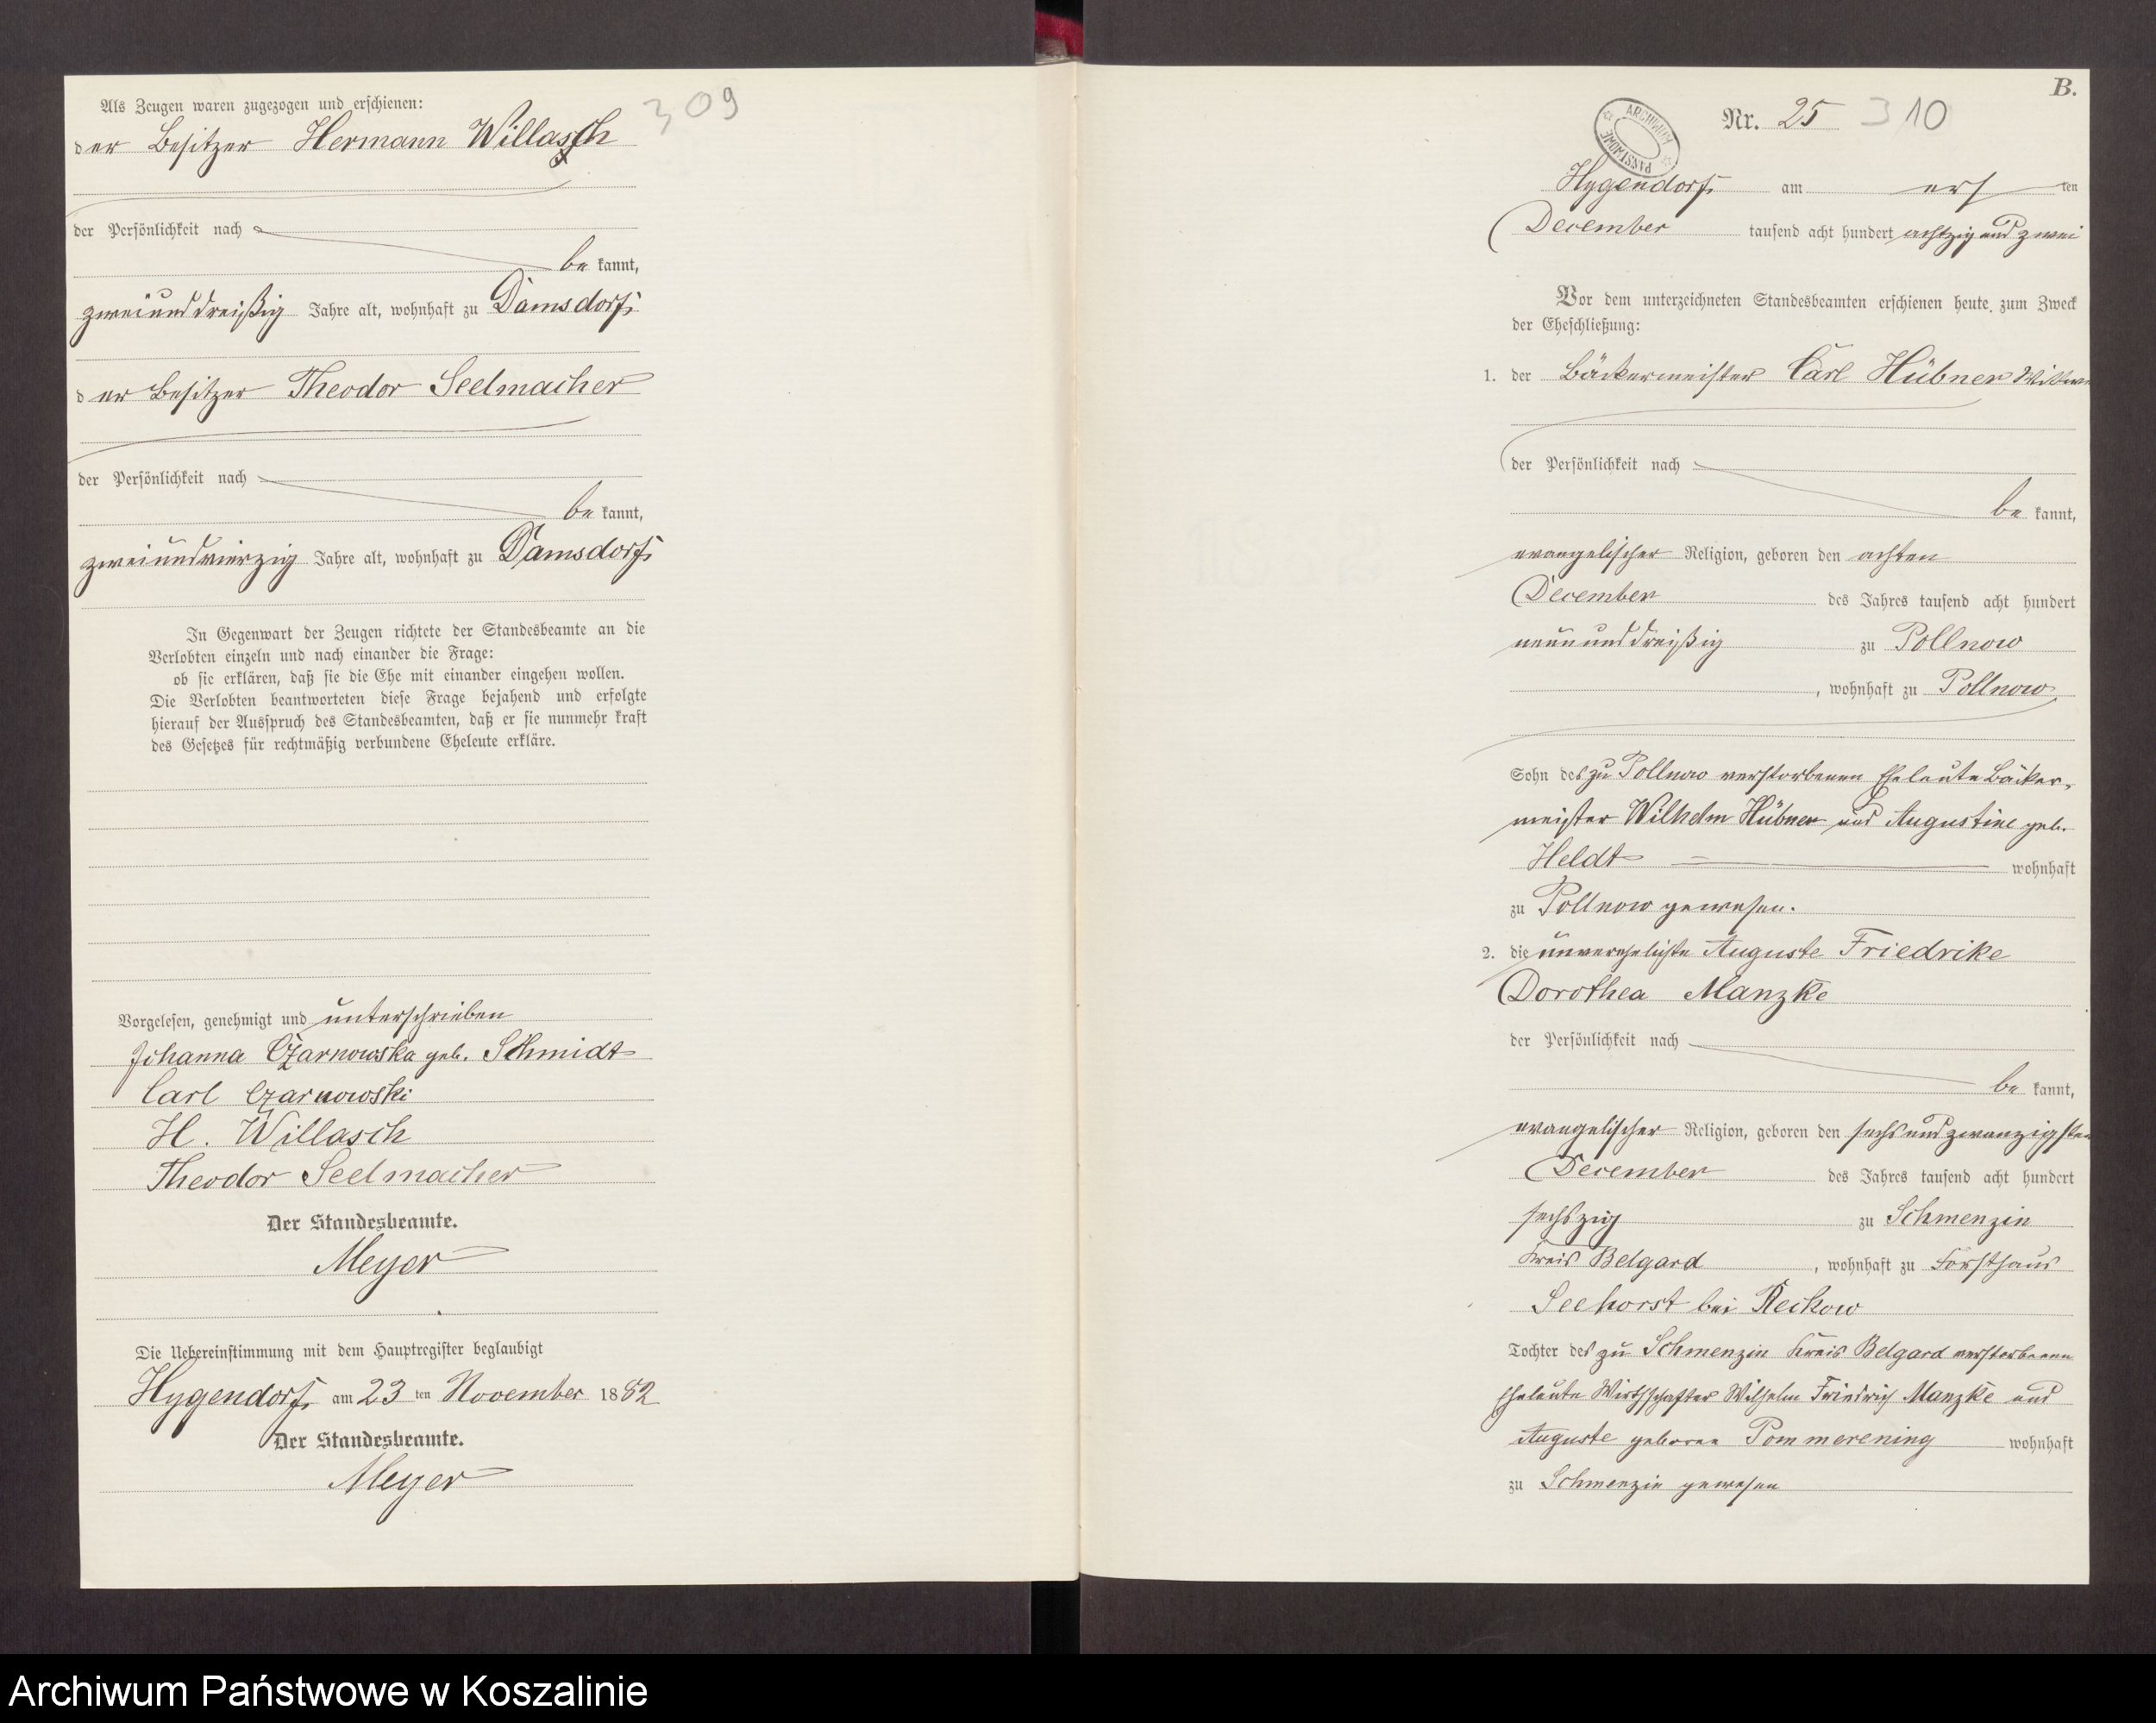 Als Zeugen waren zugezogen und erschienen:
309
der Besitzer Hermann Willasch
der Persönlichkeit nach
be kannt,
zweiunddreißig Jahre alt, wohnhaft zu Damsdorf,
der Besitzer Theodor Seelmacher
der Persönlichkeit nach
be kannt,
zweiundvierzig Jahre alt, wohnhaft zu Damsdorf,
In Gegenwart der Zeugen richtete der Standesbeamte an die
Verlobten einzeln und nach einander die Frage:
ob sie erklären, daß sie die Ehe mit einander eingehen wollen.
Die Verlobten beantworteten diese Frage bejahend und erfolgte
hierauf der Ausspruch des Standesbeamten, daß er sie nunmehr kraft
des Gesetzes für rechtmäßig verbundene Eheleute erkläre.
Vorgelesen, genehmigt und unterschrieben
Johanna Czarnowska geb. Schmidt
Carl Czarnowski
H. Willasch
Theodor Seelmacher
Der Standesbeamte.
Meyer
Die Uebereinstimmung mit dem Hauptregister beglaubigt
Hygendorf, am 23 ten November 1882
Der Standesbeamte.
Meyer
B.
Nr. 25 310
ARCHIWUM PAŃSTWOWE
Hygendorf, am ers ten
December tausend acht hundert achtzig und zwei
Vor dem unterzeichneten Standesbeamten erschienen heute, zum Zweck
der Eheschließung:
1. der Bäckermeister Carl Hübner Wittwer
der Persönlichkeit nach
be kannt,
evangelischer Religion, geboren den achten
December des Jahres tausend acht hundert
neununddreißig zu Pollnow
, wohnhaft zu Pollnow
Sohn des zu Pollnow verstorbenen Eheleute Bäcker-
meister Wilhelm Hübner und Augustine geb.
Heldt wohnhaft
zu Pollnow gewesen.
2. die unverehelichte Auguste Friedrike
Dorothea Manzke
der Persönlichkeit nach
be kannt,
evangelischer Religion, geboren den sechsundzwanzigsten
December des Jahres tausend acht hundert
sechszig zu Schmenzin
Kreis Belgard , wohnhaft zu Forsthaus
Seehorst bei Reckow
Tochter des zu Schmenzin Kreis Belgard verstorbenen
Eheleute Wirthschafter Wilhelm Friedrich Manzke und
Auguste geborene Pommerening wohnhaft
zu Schmenzin gewesen
Archiwum Państwowe w Koszalinie